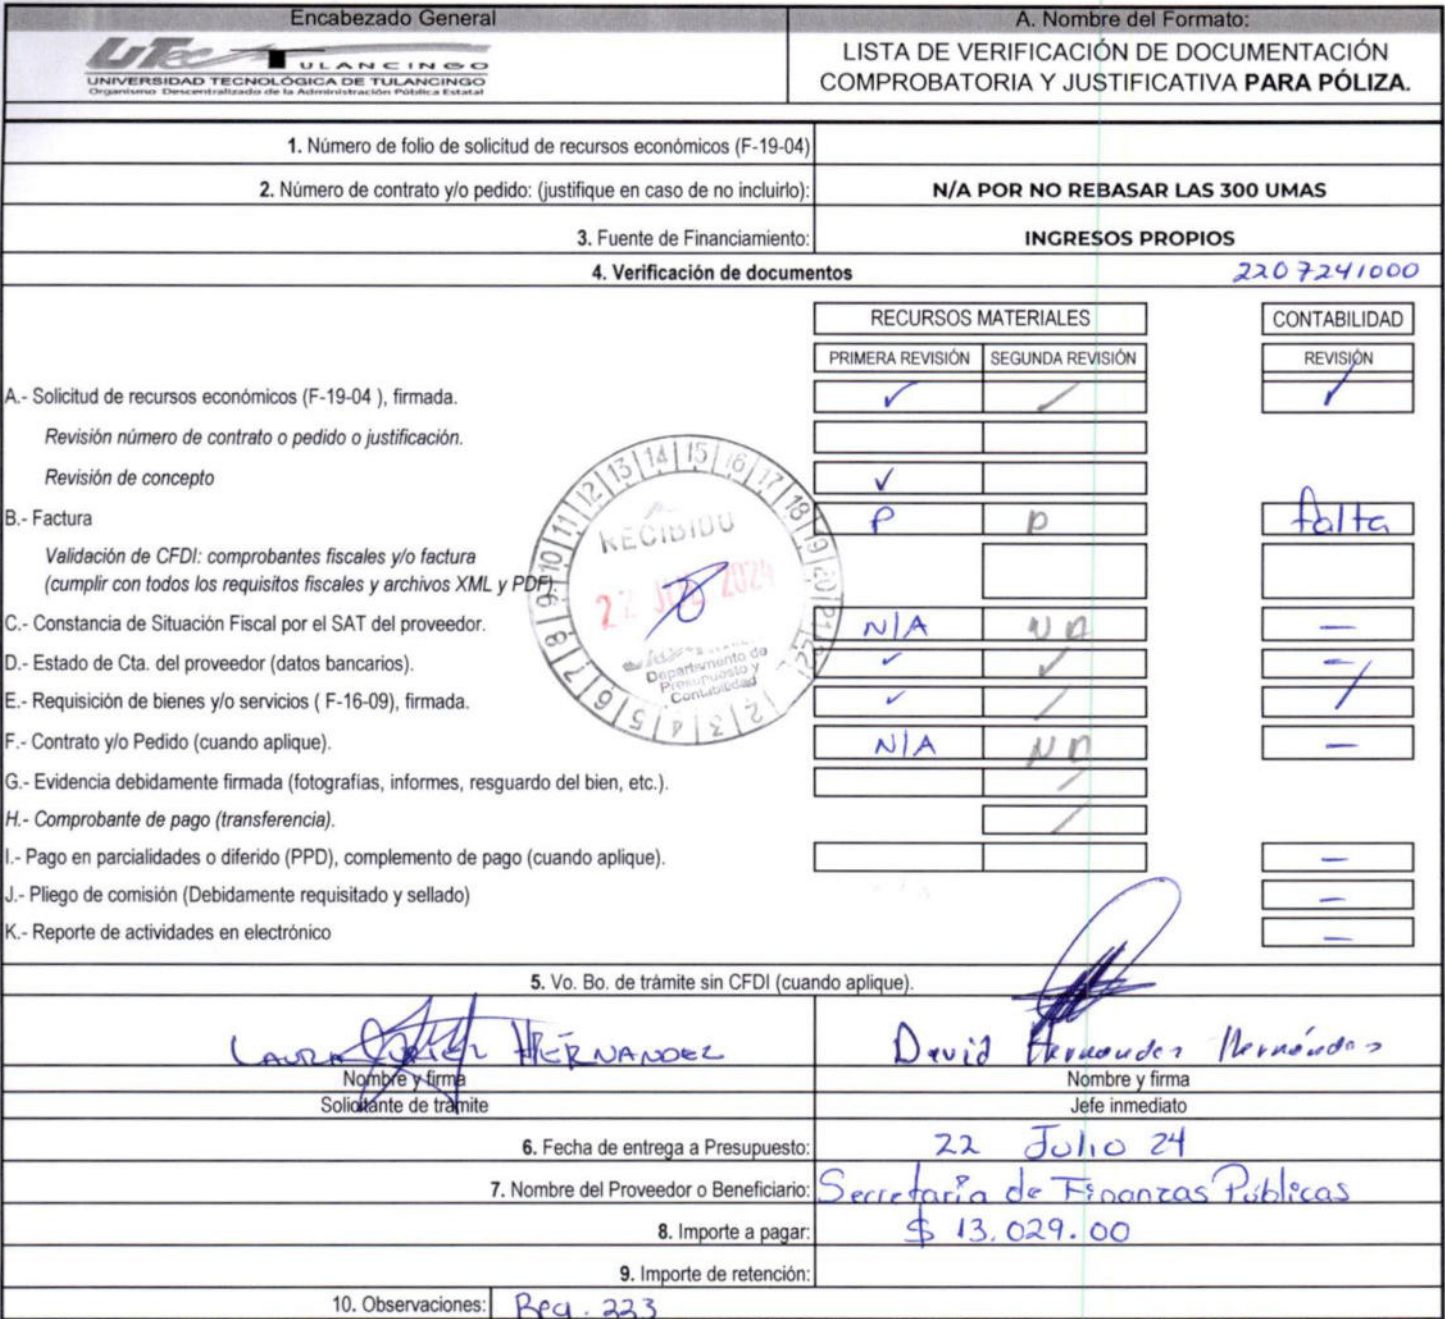 Encabezado General
A. Nombre del Formato:
UTec TULANCINGO
UNIVERSIDAD TECNOLÓGICA DE TULANCINGO
Organismo Descentralizado de la Administración Pública Estatal
LISTA DE VERIFICACIÓN DE DOCUMENTACIÓN
COMPROBATORIA Y JUSTIFICATIVA PARA PÓLIZA.
1. Número de folio de solicitud de recursos económicos (F-19-04)
2. Número de contrato y/o pedido: (justifique en caso de no incluirlo): N/A POR NO REBASAR LAS 300 UMAS
3. Fuente de Financiamiento: INGRESOS PROPIOS
4. Verificación de documentos 2207241000
RECURSOS MATERIALES CONTABILIDAD
PRIMERA REVISIÓN SEGUNDA REVISIÓN REVISIÓN
A.- Solicitud de recursos económicos (F-19-04 ), firmada. ✓ ✓ ✓
Revisión número de contrato o pedido o justificación.
Revisión de concepto ✓
B.- Factura P P falta
Validación de CFDI: comprobantes fiscales y/o factura
(cumplir con todos los requisitos fiscales y archivos XML y PDF).
C.- Constancia de Situación Fiscal por el SAT del proveedor. N/A NA —
D.- Estado de Cta. del proveedor (datos bancarios). ✓ ✓ —
E.- Requisición de bienes y/o servicios ( F-16-09), firmada. ✓ / /
F.- Contrato y/o Pedido (cuando aplique). N/A NA —
G.- Evidencia debidamente firmada (fotografías, informes, resguardo del bien, etc.). /
H.- Comprobante de pago (transferencia). /
I.- Pago en parcialidades o diferido (PPD), complemento de pago (cuando aplique). —
J.- Pliego de comisión (Debidamente requisitado y sellado) —
K.- Reporte de actividades en electrónico —
RECIBIDO
22 JUL 2024
Departamento de
Presupuesto y
Contabilidad
1 2 3 4 5 6 7 8 9 10 11 12 13 14 15 16 17 18 19 20 21 22
5. Vo. Bo. de trámite sin CFDI (cuando aplique).
LAURA CURIEL HERNANDEZ
David Hernandez Hernández
Nombre y firma
Nombre y firma
Solicitante de trámite
Jefe inmediato
6. Fecha de entrega a Presupuesto: 22 Julio 24
7. Nombre del Proveedor o Beneficiario: Secretaría de Finanzas Públicas
8. Importe a pagar: $ 13,029.00
9. Importe de retención:
10. Observaciones: Req. 223